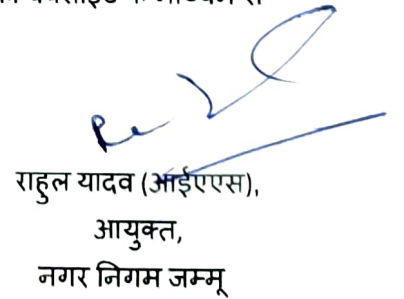 राहुल यादव (आईएएस),
आयुक्त,
नगर निगम जम्मू